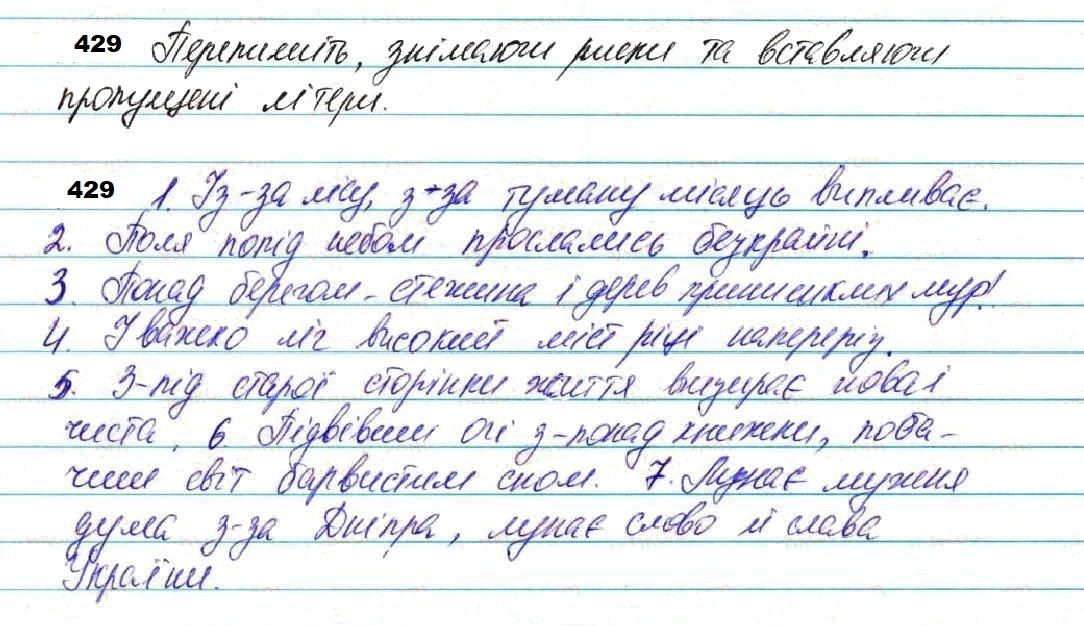 429 Перепишіть, знімаючи риски та вставляючи
пропущені літери.
429 1. Із-за лісу, з-за туману місяць випливає.
2. Поля попід небом прослались безкрайні.
3. Понад берегом - стежина і дерев принишклих мур!
4. І важко ліг високий міст ріці напереріз.
5. З-під старої сторінки життя визирає нова і
чиста. 6. Підвівши очі з-понад книжки, поба-
чиш світ барвистим сном. 7. Лунає мужня
дума з-за Дніпра, лунає слово й слава
України.